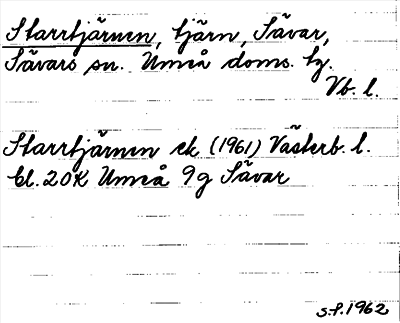 Starrtjärnen, tjärn, Sävar,
Sävars sn. Umeå doms. hg.
Vb. l.
Starrtjärnen ek (1961) Västerb. l.
bl. 20K Umeå 9g Sävar
S.f. 1962